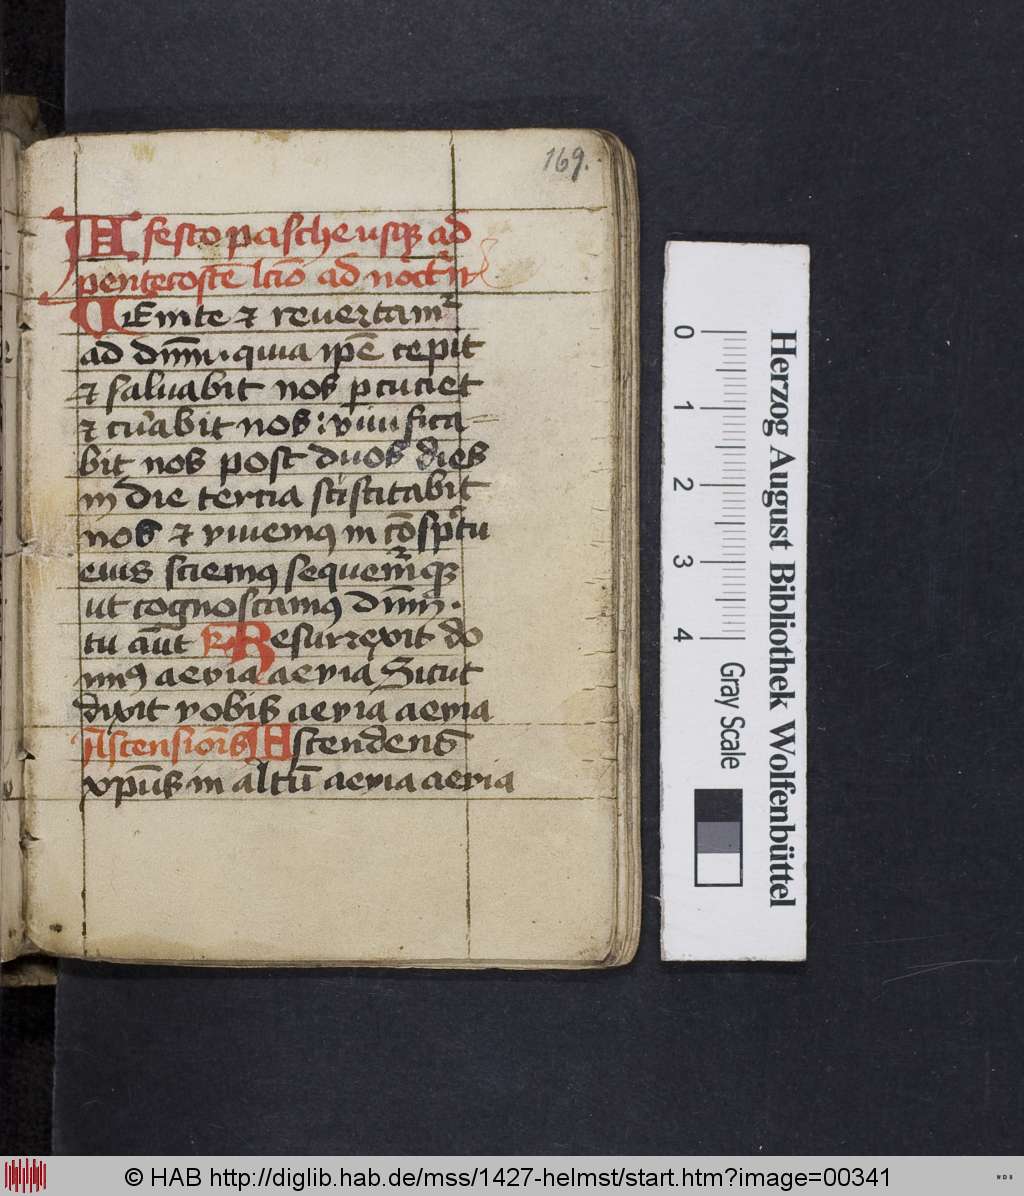 169.
A festo pasche usqꝫ ad
pentecostē lc̄io ad noctꝰn
UEnite ⁊ reuertamᷣ
ad dn̄m. quia ip̄e cepit
⁊ saluabit nos ꝑcuciet
⁊ cu᷑abit nos: viuifica-
bit nos post duos dies
in die tercia suscitabit
nos ⁊ viuemꝰ in cōspc̄tu
eius sciemꝰ sequem᷑qꝫ
ut cognoscamꝰ dn̄m.
tu aūt R Resurrexit do
minꝰ aevia aevia Sicut
dixit vobis aevia aevia
Ascensiōis Ascendens
xp̄us in altū aevia aevia
0 1 2 3 4
Herzog August Bibliothek Wolfenbüttel
Gray Scale
© HAB http://diglib.hab.de/mss/1427-helmst/start.htm?image=00341